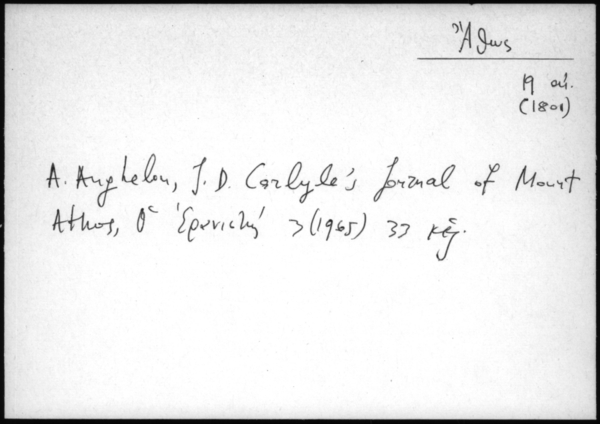 Ἄθως
19 αἰ.
(1801)
A. Anghelou, J. D. Carlyle's Journal of Mount
Athos, Ὁ Ἐρανιστής 3 (1965) 33 κἑξ.